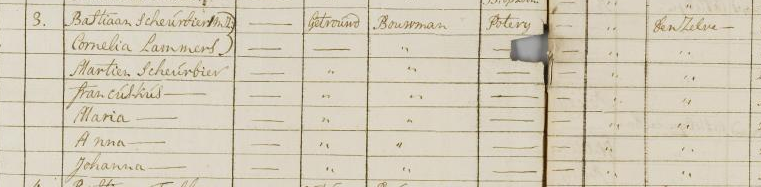 3. Bastiaan Scheurbier — Getrouwd Bouwman Potery — " den Zelve —
Cornelia Lammers) — — " — " "
Martien Scheurbier — " " — — " "
Francuskus — — " " — — " "
Maria — — " " — — " "
Anna — — " " — — " "
Johanna — — " " — — " "